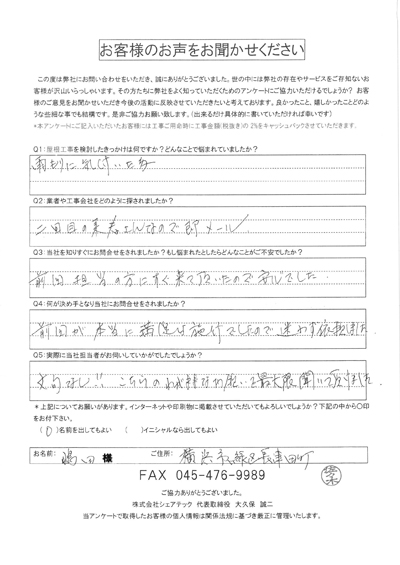 お客様のお声をお聞かせください
この度は弊社にお問い合わせをいただき、誠にありがとうございました。世の中には弊社の存在やサービスをご存知ないお
客様が沢山いらっしゃいます。その方たちに弊社をよく知っていただくためのアンケートにご協力いただけるでしょうか? お客
様のご意見をお聞かせいただき今後の活動に反映させていただきたいと考えております。良かったこと、嬉しかったことどのよ
うな些細な事でも結構です。是非ご協力お願い致します。(出来るだけ具体的に書いていただければ幸いです)
*本アンケートにご記入いただいたお客様には工事ご用命時に工事金額(税抜き)の2%をキャッシュバックさせていただきます。
Q1:屋根工事を検討したきっかけは何ですか?どんなことで悩まれていましたか?
雨もりに気付いた為
Q2:業者や工事会社をどのように探されましたか?
二回目の業者さんなので即メール
Q3:当社を知りすぐにお問合せをされましたか?もし悩まれたとしたらどんなことがご不安でしたか?
前回担当の方にすぐ来て頂いたので安心でした
Q4:何が決め手となり当社にお問合せをされましたか?
前回が本当に満足な施行でしたので迷わず依頼しました
Q5:実際に当社担当者がお伺いしていかがでしたでしょうか?
文句なし!! こちらの
最大限聞いて頂けました
*上記についてお願いがあります。インターネットや印刷物に掲載させていただいてもよろしいでしょうか?下記の中から〇印
をお付け下さい。
(〇)名前を出してもよい ( )イニシャルなら出してもよい
お名前: 嶋田 様 ご住所: 横浜市緑区長津田町
FAX 045-476-9989
ご協力ありがとうございました。
株式会社シェアテック 代表取締役 大久保 誠二
当アンケートで取得したお客様の個人情報は関係法規に基づき厳正に管理いたします。